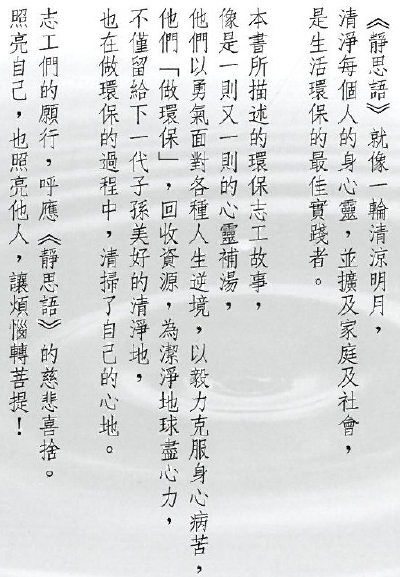 《靜思語》就像一輪清涼明月，
清淨每個人的身心靈，並擴及家庭及社會，
是生活環保的最佳實踐者。
本書所描述的環保志工故事，
像是一則又一則的心靈補湯，
他們以勇氣面對各種人生逆境，以毅力克服身心病苦，
他們「做環保」，回收資源，為潔淨地球盡心力，
不僅留給下一代子孫美好的清淨地，
也在做環保的過程中，清掃了自己的心地。
志工們的願行，呼應《靜思語》的慈悲喜捨。
照亮自己，也照亮他人，讓煩惱轉菩提！